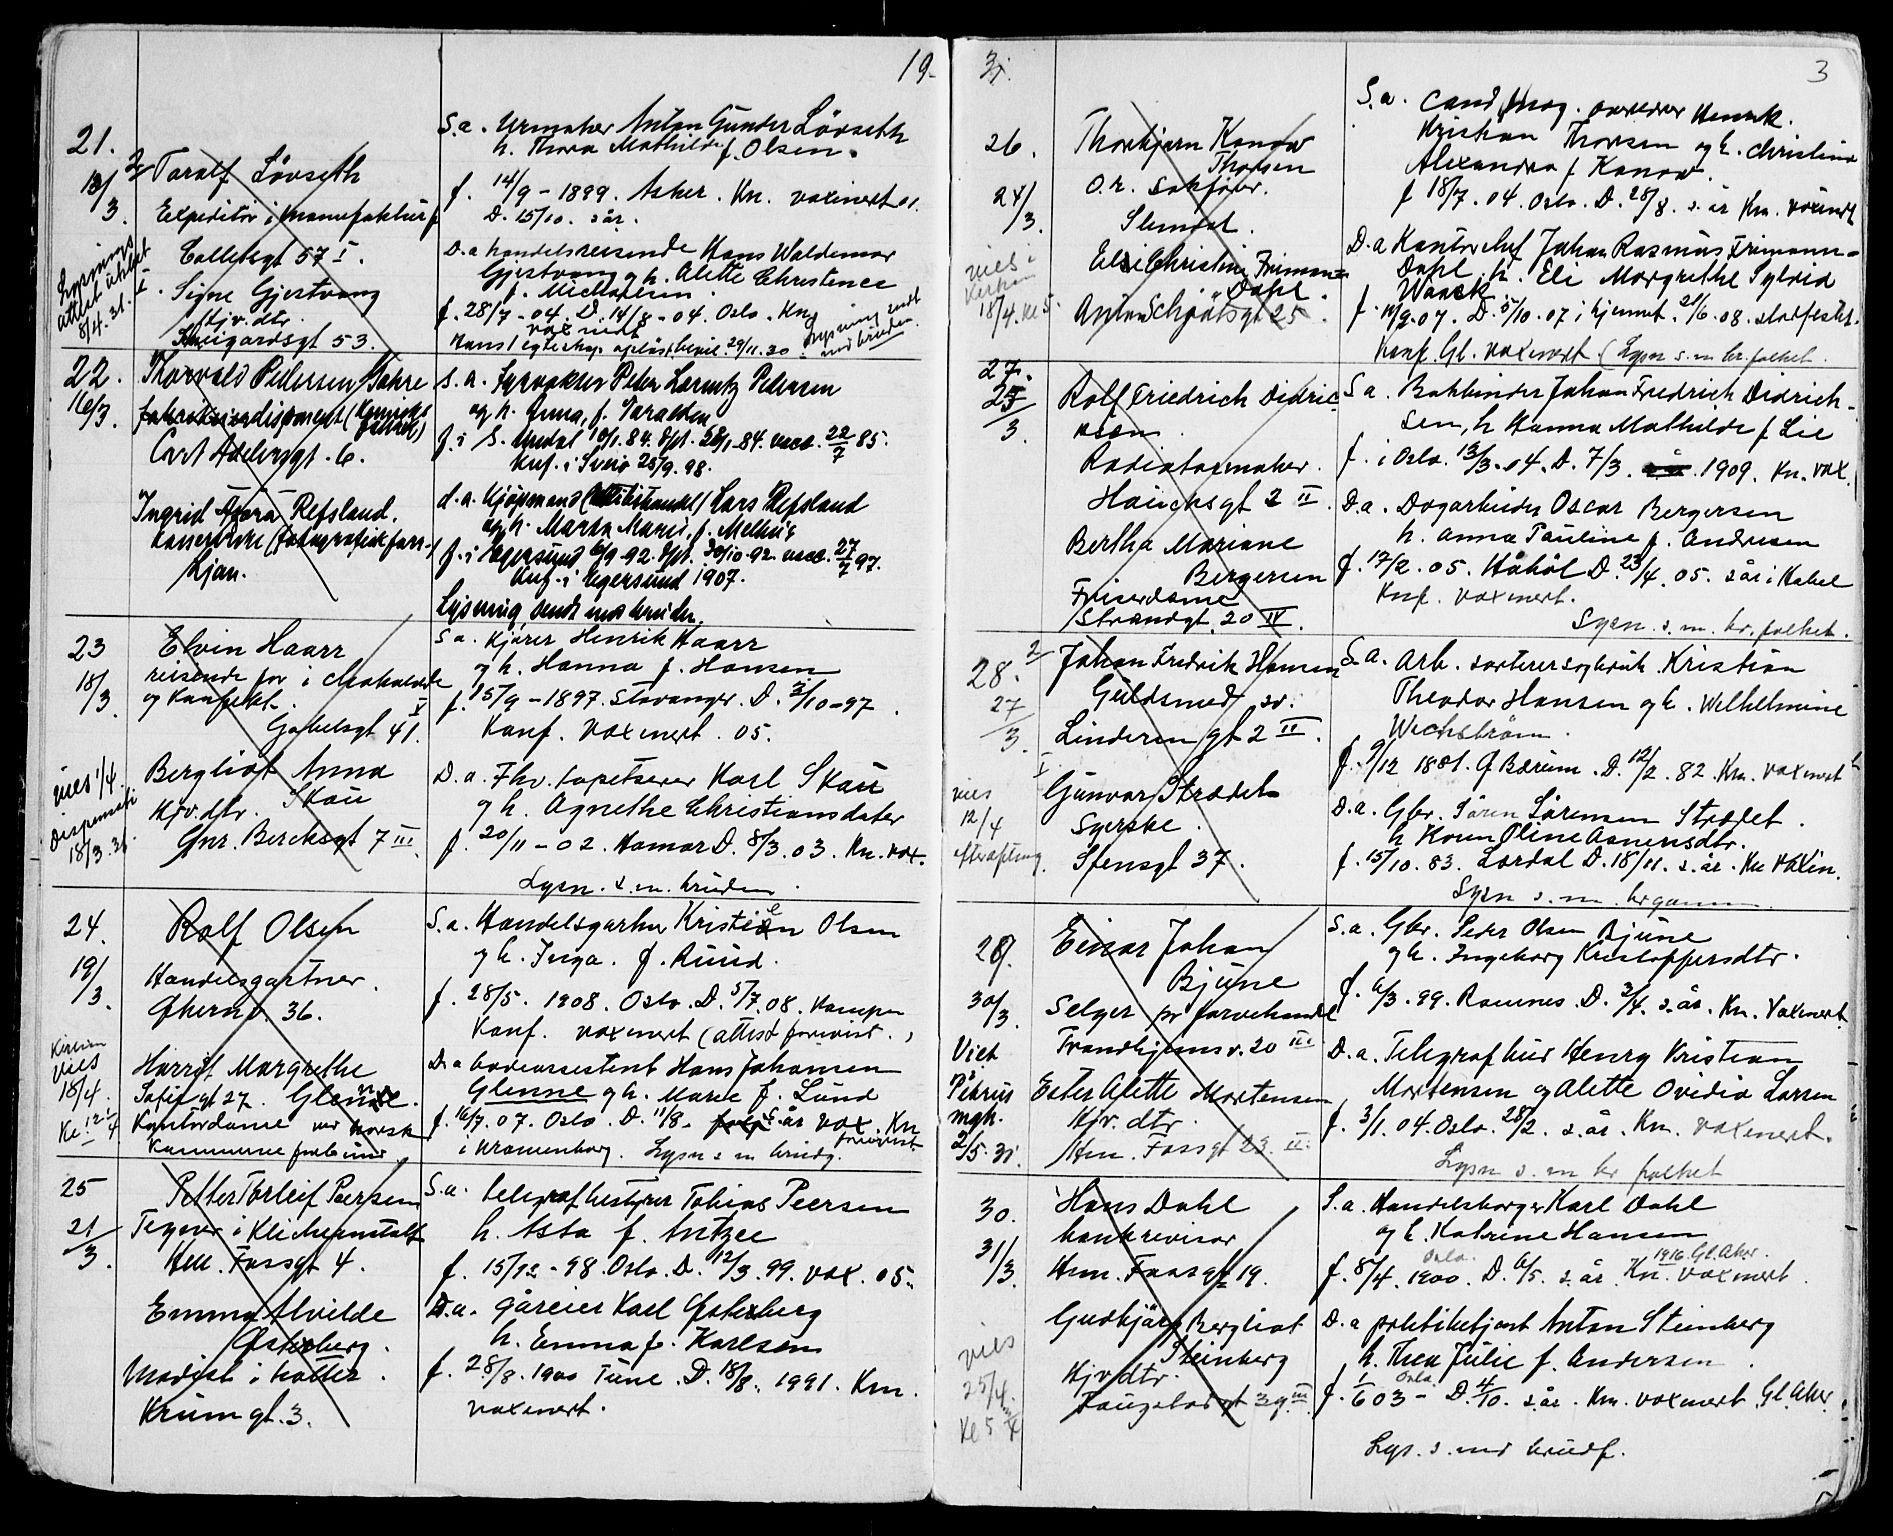 19-
21.
18/3.
Toralf Løvseth
Expeditør i manufaktur f
Colletsgt 57 I.
Signe Gjestvang
Hjv. dtr.
Schweigaardsgt 53.
Lysnings
attest utstedt
8/4. 31.
S.a. Urmaker Anton Gunder Løvseth
h. Thora Mathilde f. Olsen.
f. 14/9 - 1899. Asker. Kn. vaxinert 01.
D. 15/10. s. år.
D.a handelsreisende Hans Waldemar
Gjestvang og h. Alette Christence
f. Michaelsen.
f. 28/7 - 04. D. 14/8 - 04. Oslo. Kn.
vaxinert
Hans 1 egteskap opløst bevil. 29/11.30.
Lysning sendt
med bruden.
22.
16/3.
Thorvald Pedersen Gahre
fabrikkdisponent
Cort Adelersgt. 6.
Ingrid Thora Refsland.
Kassererske (fotografisk forr.)
Ljan.
S.a. Fyrvokter Peter Lorentz Pedersen
og h. Anna, f. Taralden
f. i S. Undal 10/1.84. dpt. 28/1-84. vacc. 22/7 85.
Knf. i Sveio 25/9.98.
d.a. kjøpmand Lars Refsland
og h. Marta Marie, f. Melhus
f. i Egersund 6/9-92. dpt. 30/10-92. vacc. 27/7 97.
Knf. i Egersund 1907.
Lysning sendt med bruden.
23
18/3.
Elvin Haarr
reisende for i chokolade
og konfekt.
Gabelsgt 41. V
vies 1/4.
Dispensati
18/3.31
Bergliot Anna
Skau
Hjv. dtr.
Gnr. Bercksgt 7 III.
S.a. Kjører Henrik Haarr
og h. Hanna f. Hansen
f. 15/9 - 1897. Stavanger. D. 3/10-97.
Konf. vaxinert. 05.
D.a. Fhv. tapetserer Karl Skau
og h. Agnethe Christiansdater
f. 20/11 - 02. Hamar D. 8/3. 03. Kn. vax.
Lysn. s. m. bruden.
24.
19/3.
Rolf Olsen
Handelsgartner.
Økernv. 36.
Kirken
vies
18/4.
Ke. 12 1/4
Harriet Margrethe
Sofiegt 27. Glenne.
Kontordame ved norsk
Kommune forbund
S.a. Handelsgartner Kristian Olsen
og h. Inga. f. Ruud.
f. 28/5. 1908. Oslo. D. 5/7.08. Kampen
Konf. vaxinert (attest forevist.)
D.a. Bodeassistent Hans Johansen
Glenne og h. Marie f. Lund
f. 16/7.07. Oslo. D. 11/8. s. år vax. Kn
forevist
i Uranienborg. Lysn s m brudg.
25
21/3.
Petter Torleif Peersen
Tegner i Klicheanstalt
Hm. Fossgt 4.
Emma Alvilde
Østerberg.
Modist i hatter.
Krumgt. 3.
S.a. telegrafbestyrer Tobias Peersen
h. Asta f. Antzee
f. 15/12 - 98. Oslo. D. 12/3. 99. vax. 05.
D.a. gåreier Karl Østerberg
h. Emma f. Karlsen
f. 28/8. 1900 Tune. D. 18/8. 1991. Kn.
vaxinert.
31. 3
26.
24/3.
Thorbjørn Kanow
Thorsen
O.r. sakfører.
Slemdal.
vies i
kirken
18/4. Kl 5.
Elsi Christine Frimann-
Dahl.
Anton Schjøtsgt 25.
S.a. cand. mag. overlærer Henrik
Kristian Thorsen og h. Christina
Alexandra f Kanow.
f 18/7. 04. Oslo. D. 28/8. s. år Kn. vaxinert
D.a Kontorchef Johan Rasmus Frimann-
Dahl h. Eli Margrethe Sylvia
Waack
f. 14/9.07. D. 5/10. 07 i hjemmet. 21/6.08. stadfestet.
Konf. Gl. vaxinert. (Lysn s. m. br. folket.
27.
25/3.
Rolf Friedrich Didric-
sen
Radiotormaker.
Hauchsgt 2 II.
Bertha Mariane
Bergersen
Friserdame
Strandgt. 20 IV.
S.a. Bokbinder Johan Friedrich Didrich-
sen, h Hanna Mathilde f Lie
f. i Oslo. 13/3. 04. D. 7/3. 1909. Kn. vax.
D.a. Dagarbeider Oscar Bergersen
h. Anna Pauline f. Andresen
f. 17/2. 05. Håbøl D. 23/4. 05. s år i Håbøl
Knf. vaxinert.
Lysn. s. m. br. folket.
28.
27/3.
Johan Fredrik Hansen
Guldsmed sv.
Linderengt 2 II.
vies
12/4
Gunvor Strædet
Syerske.
Stensgt 37.
S.a. Arb. Kristian
Theodor Hansen og h. Welhelmine
Wechström.
f. 9/12 1881. Ø Bærum. D. 12/2. 82. Kn. vaxinert
D.a. Gbr. Søren Sørensen Strædet.
h Karen Oline Asmensdtr.
f. 15/10. 83. Lardal D. 18/11. s. år. Kn vaxin.
Lysn s. m. brgommen.
29.
30/3.
Einar Johan
Bjune
Selger pr farvehandel
Trondhjemsv. 20 III
Viet
Petrus
mgh.
2/5.31.
Ester Alette Mortensen
Hjv. dtr.
Hm. Fossgt 23. II.
S.a. Gbr. Peder Olsen Bjune
og h. Ingeborg Kristoffersdtr.
f. 6/3. 99. Ramnes. D. 3/4. s. år. Kn. vaxinert
D.a. Telegrafbud Henry Kristian
Mortensen og Alette Ovidia Larsen
f. 3/1. 04. Oslo. 28/2. s. år. Kn. vaxinert.
Lysn s. m br folket
30.
31/3.
Hans Dahl
bankrevisor
Hm. Fossgt 19.
vies
25/4.
Kl 5
Gudbjørg Bergliot
Steinberg
Hjv dtr.
Fougstadgt 39 III
S.a. Handelsborger Karl Dahl
og h. Katrine Hansen
Oslo. 1916. Gl. Aker.
f. 8/4. 1900. D. 6/5. s. år. Kn. vaxinert.
D.a politibetjent Anton Steinberg
h. Thea Julie f. Andersen.
Oslo
f. 1/6 03 - D. 4/10. s. år. Kn. vaxinert Gl. Aker
Lys. s. med brudf.